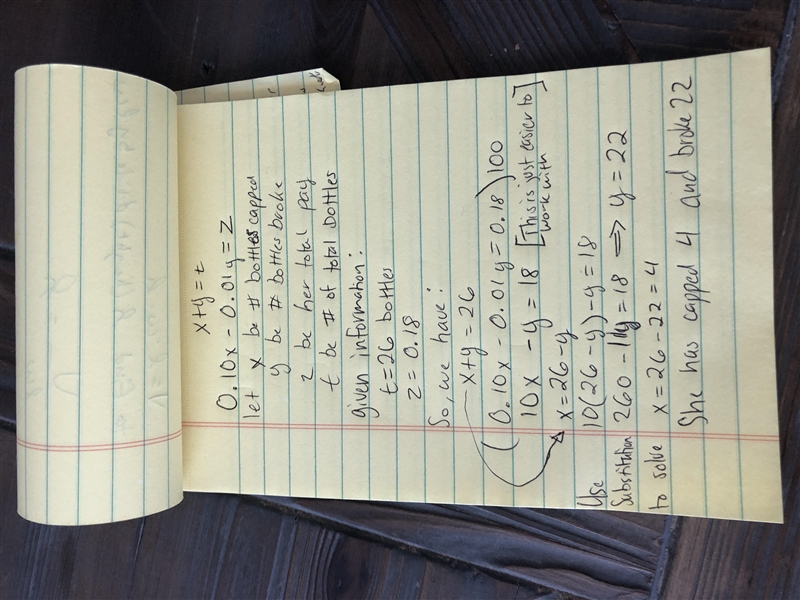 x+y=t
0.10x - 0.01y = z
let x be # bottles capped
y be # bottles broke
z be her total pay
t be # of total bottles
given information:
t=26 bottles
z = 0.18
So, we have:
x+y=26
(0.10x - 0.01y = 0.18)100
10x - y = 18 [This is just easier to work with]
x=26-y
Use 10(26-y)-y=18
Substitution 260 - 11y = 18 ⇒ y = 22
to solve x=26-22=4
She has capped 4 and broke 22